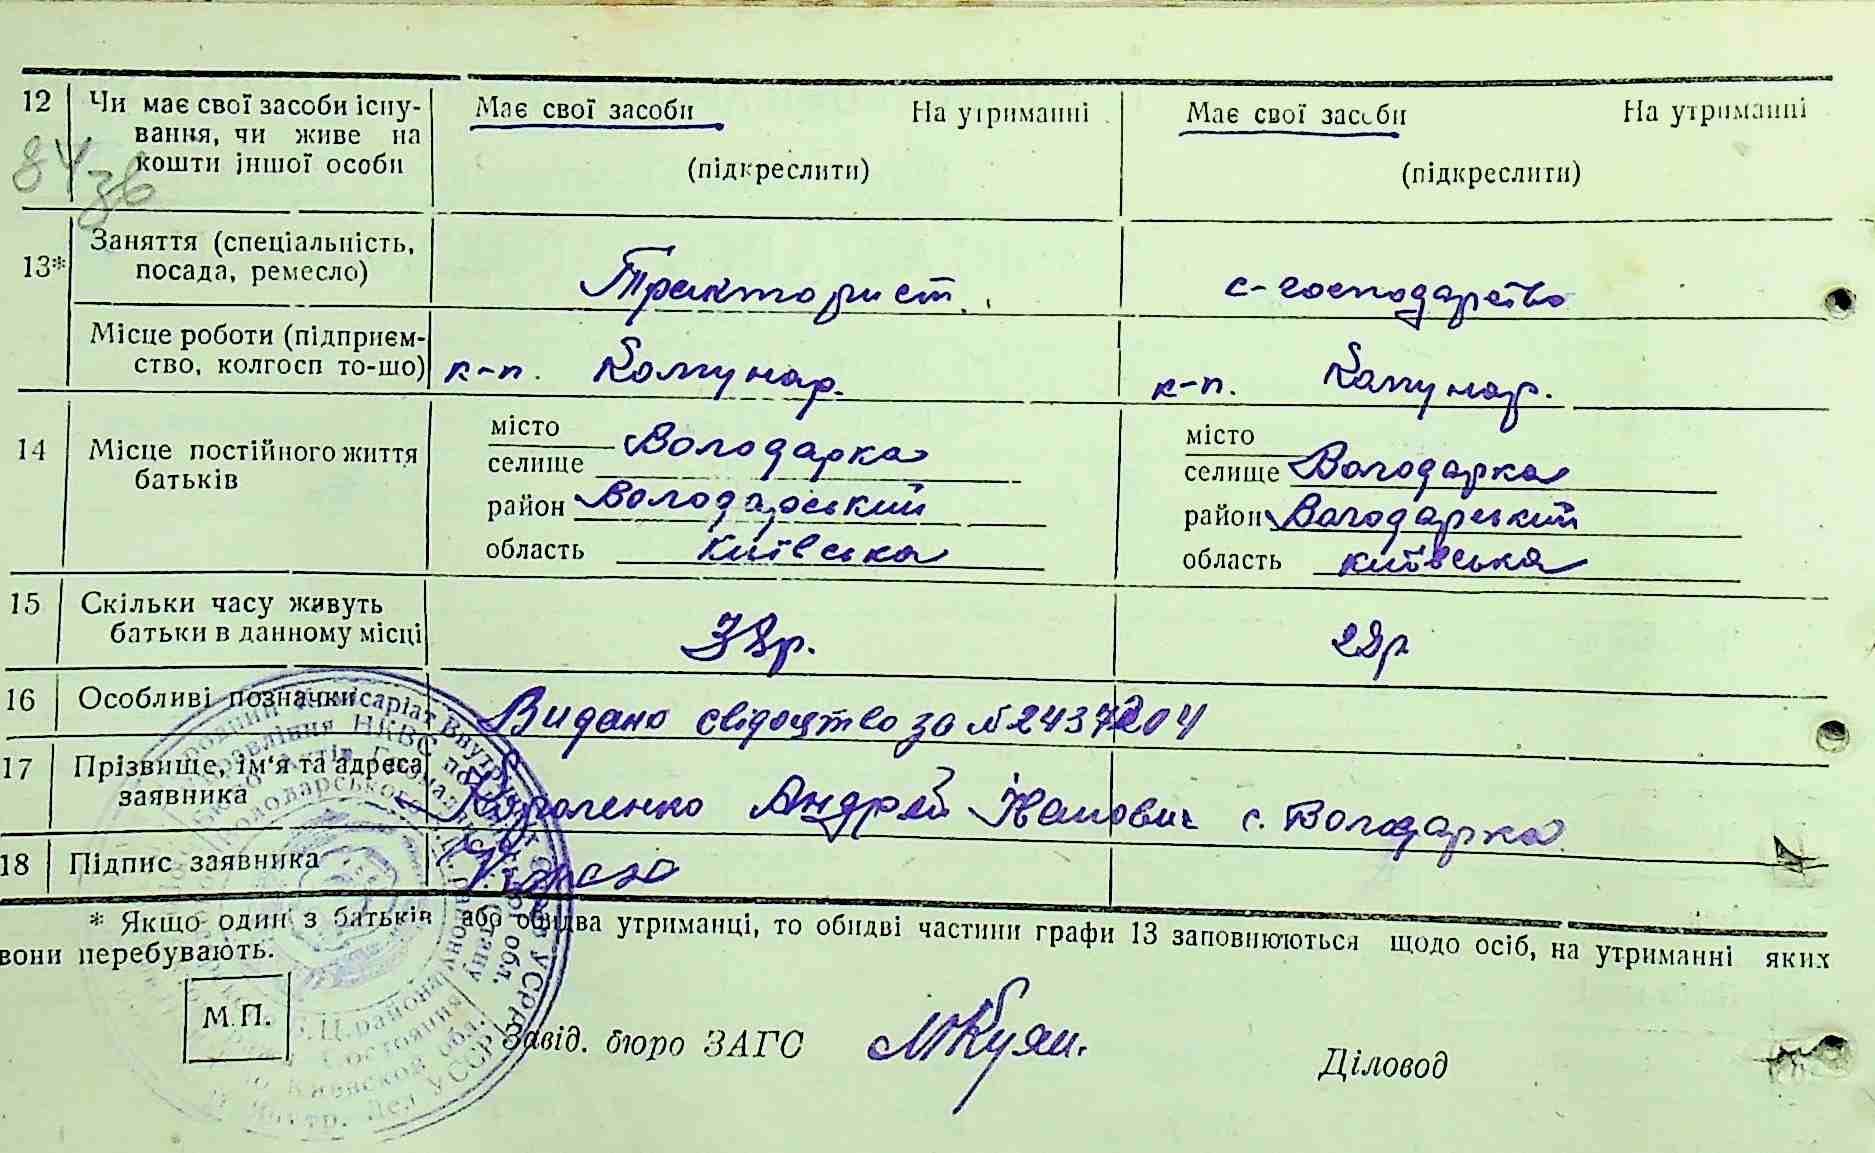 12 Чи має свої засоби існу- Має свої засоби На утриманні Має свої засоби На утриманні
вання, чи живе на
кошти іншої особи (підкреслити) (підкреслити)
84 зв
Заняття (спеціальність,
13* посада, ремесло) Тракторист. с-господарство
Місце роботи (підприєм-
ство, колгосп то-що) к-п. Комунар. к-п. Комунар.
місто місто
14 Місце постійного життя селище Володарка селище Володарка
батьків район Володарський район Володарський
область Київська область Київська
15 Скільки часу живуть
батьки в данному місці 38р. 28р
16 Особливі позначки Видано свідоцтво за №2437204
17 Прізвище, ім'я та адреса
заявника Андрей Іванович с. Володарка
18 Підпис заявника
* Якщо один з батьків або обидва утриманці, то обидві частини графи 13 заповнюються щодо осіб, на утриманні яких
вони перебувають.
М.П.
Завід. бюро ЗАГС Діловод